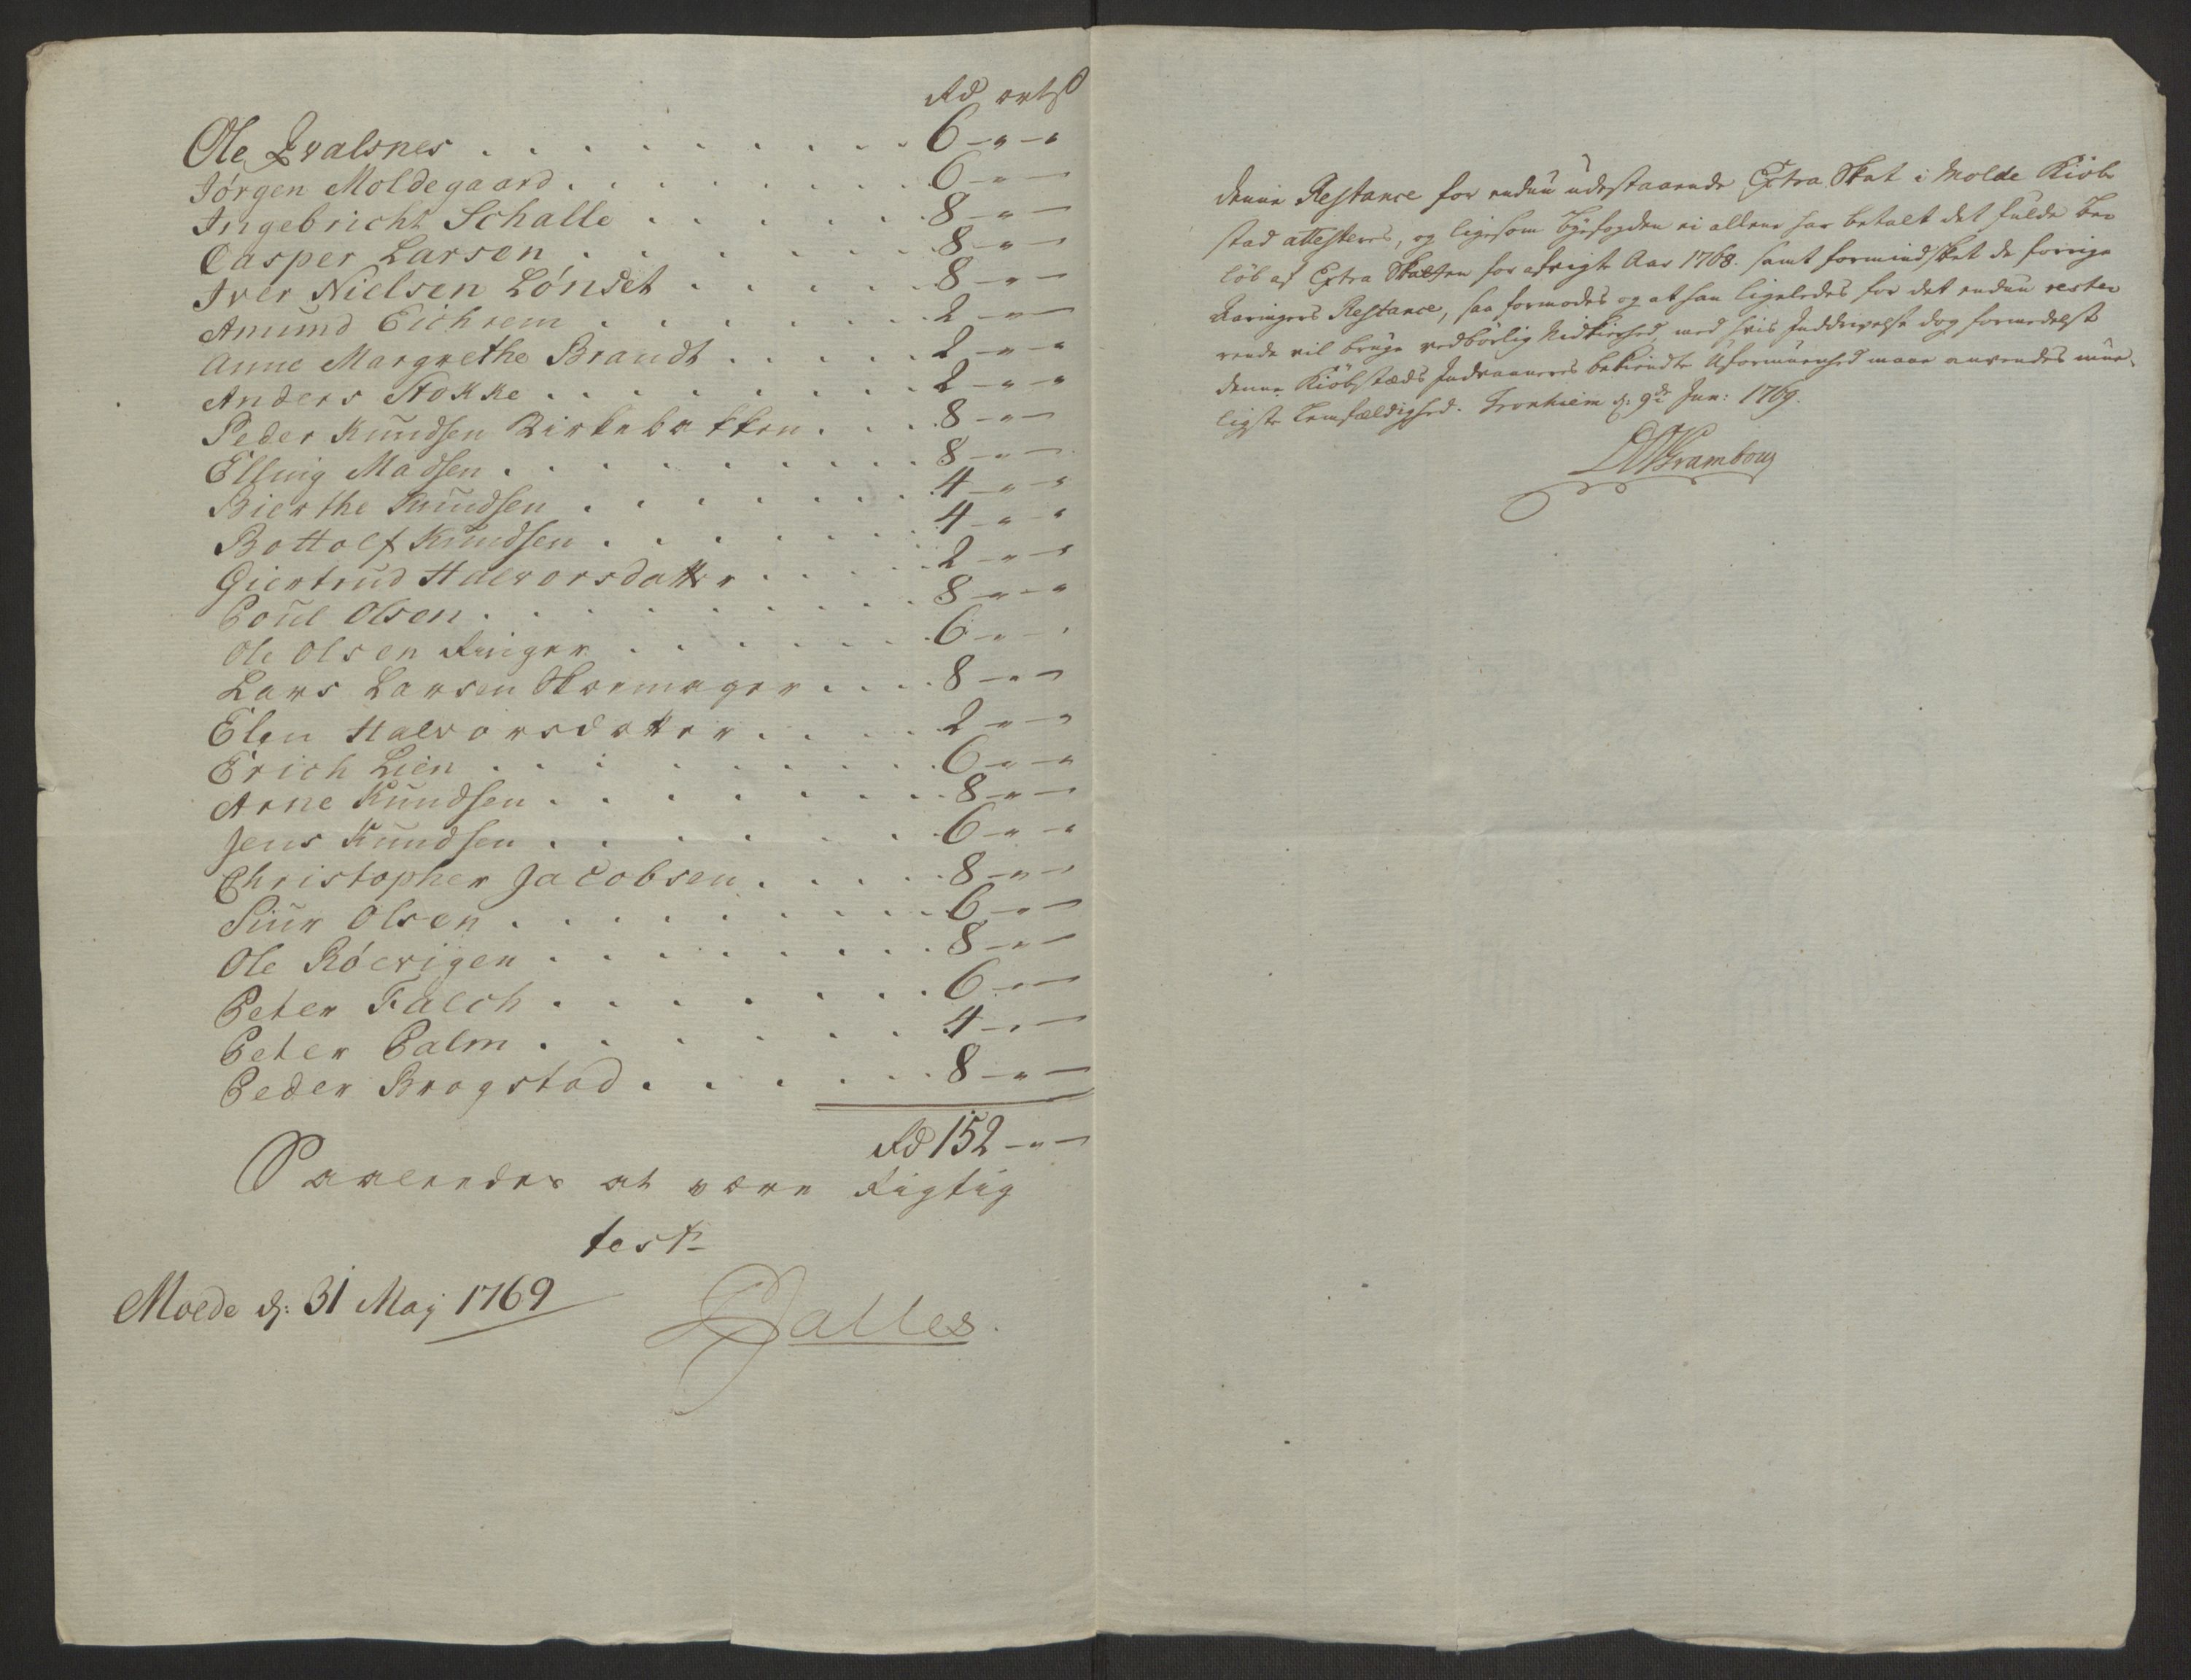 Rd ort ß
Ole Qvalsnes . . . . . . . . . 6 - " - "
Jørgen Moldegaard . . . . . . . 6 - " -
Ingebricht Schalle . . . . . . 8 - " -
Casper Larsen . . . . . . . 8 - " -
Iver Nielsen Lønset . . . . . 8 - " -
Amund Eichrem . . . . . . 2 - " -
Anne Margrethe Brandt . . . . . 2 - " - "
Anders Stokke . . . . . . . . 2 - " - "
Peder Knudsen Birkebakken . . . 8 - " -
Elling Madsen . . . . . . . . . 8 - " -
Bierthe Knudsen . . . . . . . 4 - " - "
Bottolf Knudsen . . . . . . . 4 - " - "
Giertrud Halvorsdatter . . . . . 2 - " - "
Poul Olsen . . . . . . . . . 8 - " - "
Ole Olsen Ringer . . . . . . 6 - " - "
Lars Larsen Skoemager . . . . 8 - " -
Elen Halvorsdatter . . . . . 2 - " - "
Erich Lien . . . . . . . . . 6 - " - "
Arne Knudsen . . . . . . . . 8 - " -
Jens Knudsen . . . . . . . 6 - " - "
Christopher Jacobsen . . . . . 8 - " -
Siur Olsen . . . . . . . . . 6 - " -
Ole Röevigen . . . . . . . . 8 - " -
Peter Falch . . . . . . . 6 - " -
Peter Palm . . . . . . . 4 - " -
Peder Bragstad . . . . . . 8 - " -
Rd 152 - " -
Saaledes at være Rigtig
test
Molde d: 31 Maj 1769
Dalles.
denne Restance for endnu udestaaende Extra Skat i Molde Kiöb
stad attesteres, og ligesom byefogden ei allene har betalt det fulde be
löb af Extra Skatten for afvigte Aar 1768. samt formindsket de forrige
Aaringers Restance, saa formodes og at han ligeledes for det endnu resten
rende vil bruge vedbörlig Nidkierhed, med hvis Inddrivelse dog formedelst
denne Kiöbstæds Indvaaneres bekiendte Uformuenhed maae anvendes mue-
ligste Lemfældighed. Tronhiem d: 9de Jun: 1769.
Krambouy